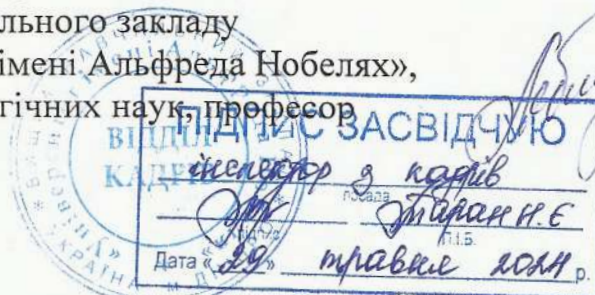 льного закладу
імені Альфреда Нобелях»,
гічних наук, професор
ВІДДІЛ
КАДРІВ
УКРАЇНА
ПІДПИС ЗАСВІДЧУЮ
інспектор з кадрів
посада
Таран Н.Є
підпис П.І.Б.
Дата «29» травня 2024 р.